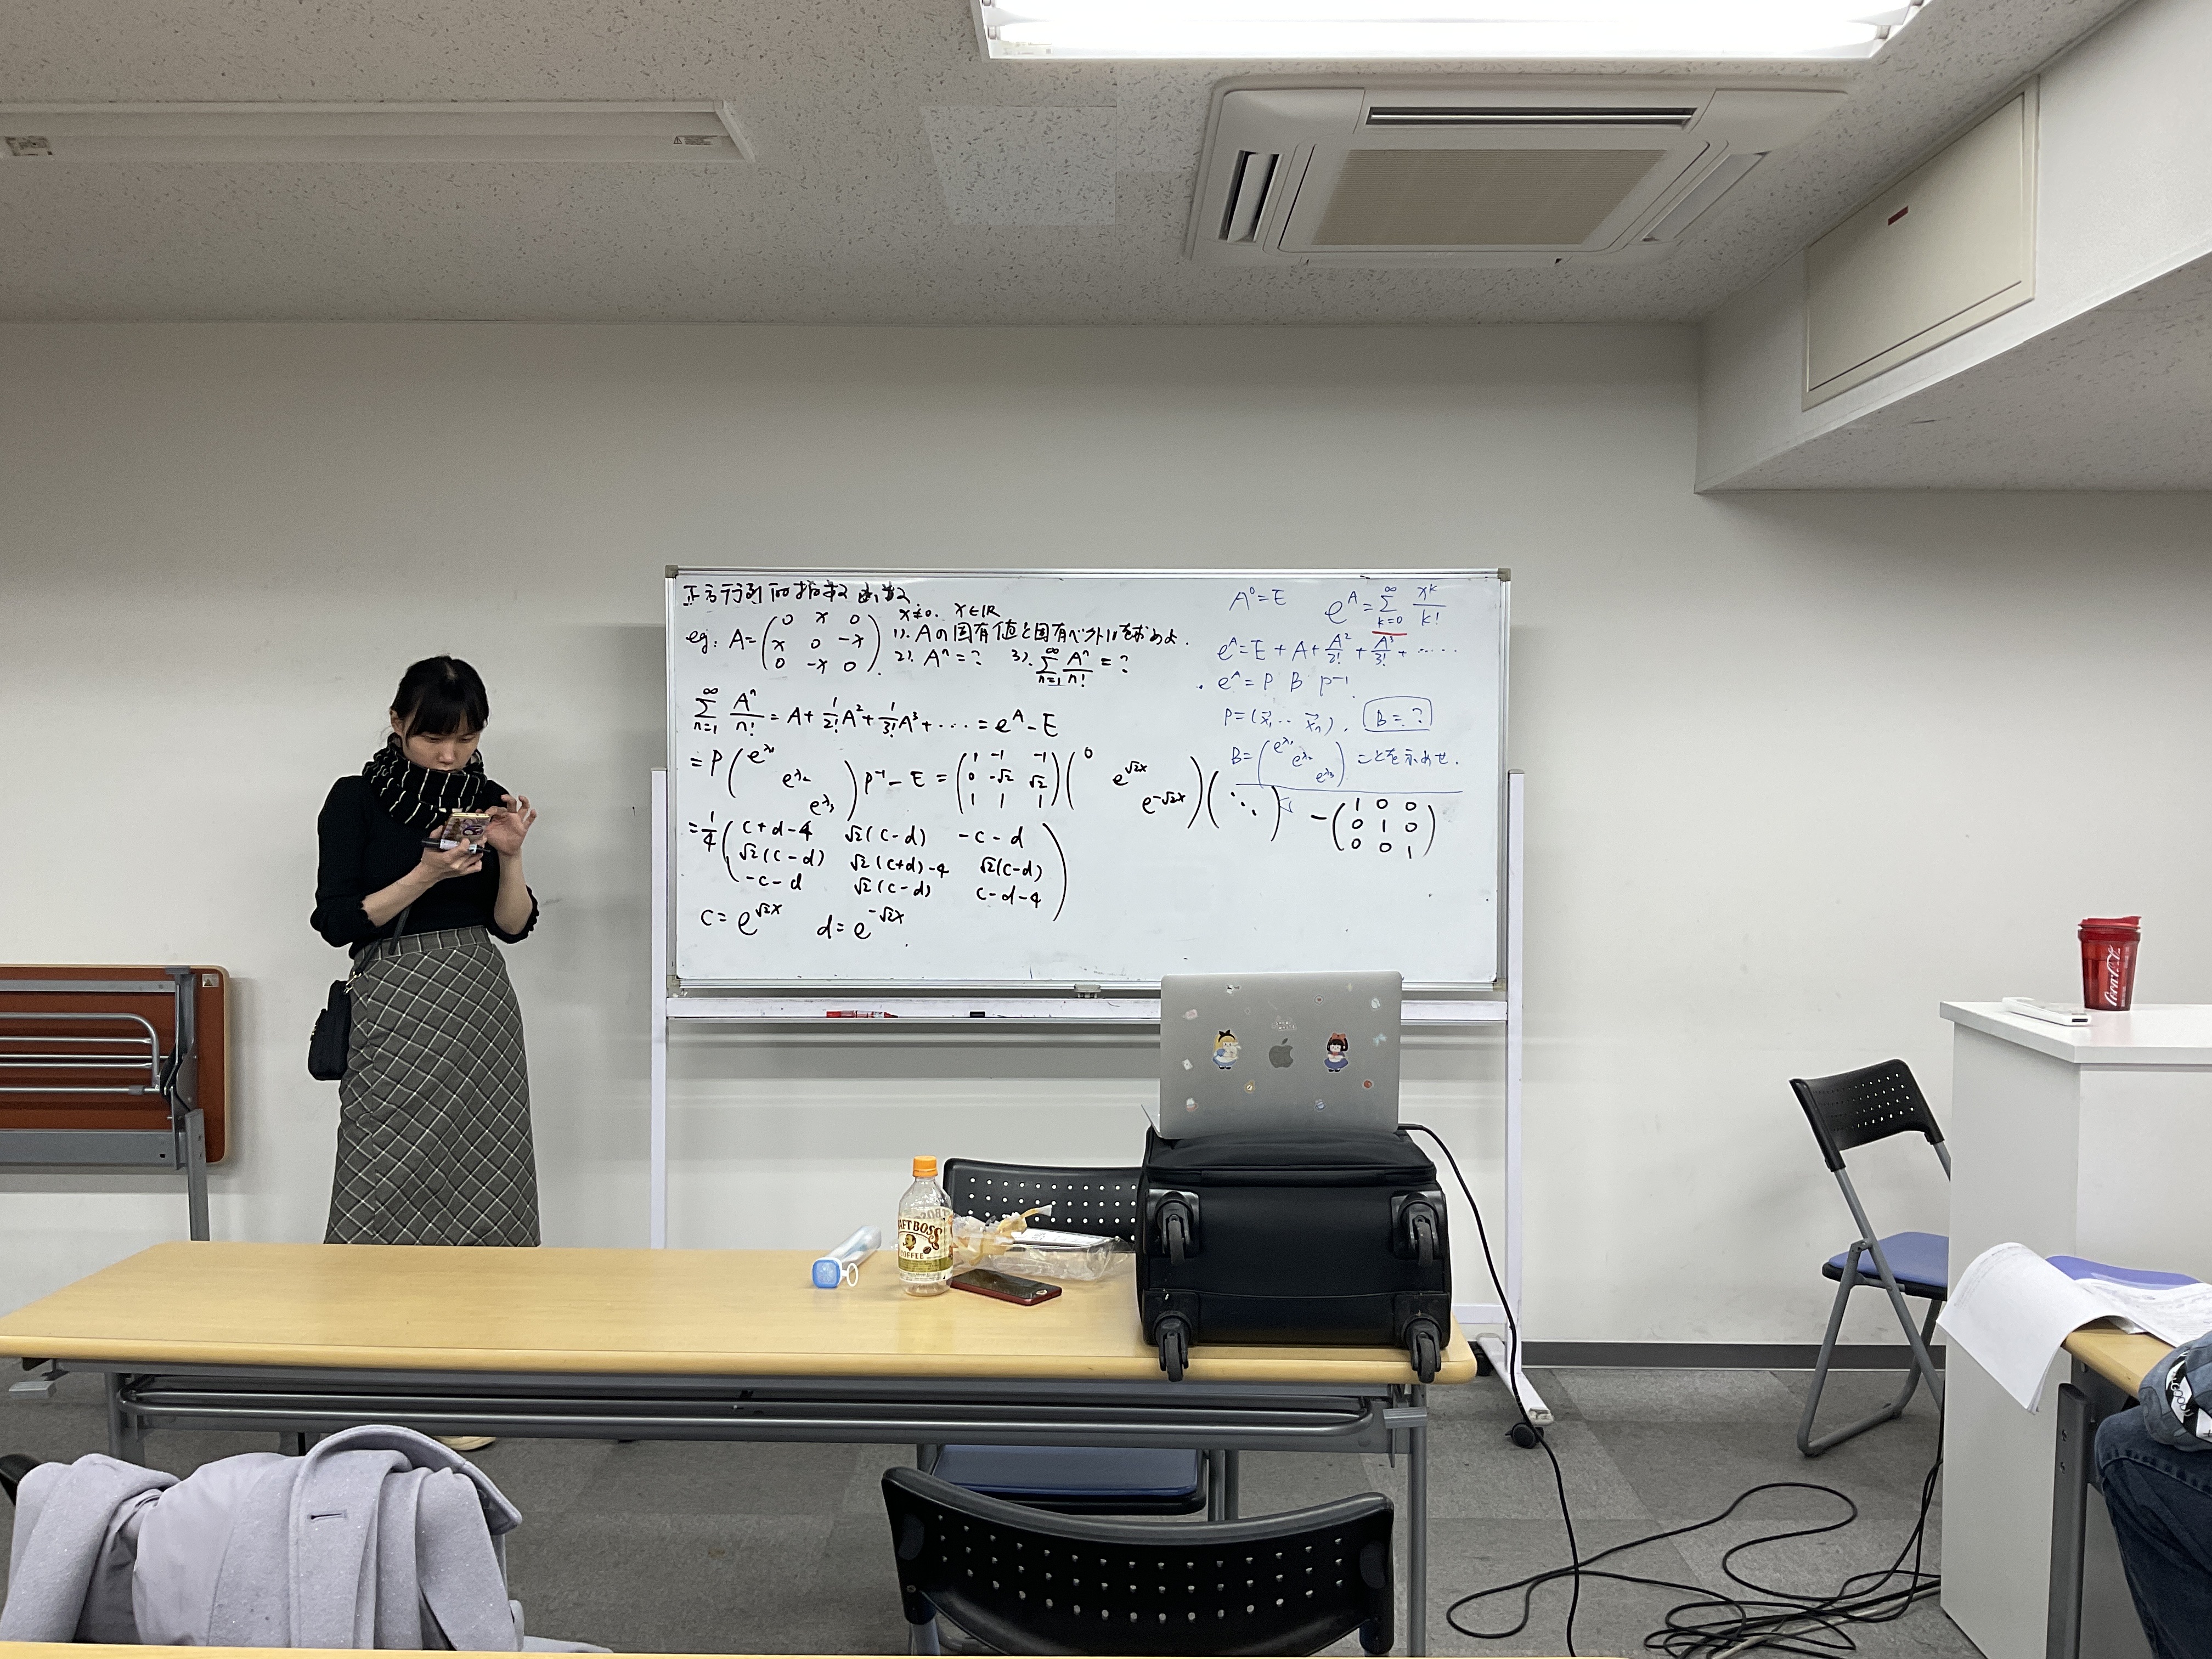 正方行列的指数函数
eg: A=(0 x 0
x 0 -x
0 -x 0)
x≠0. x∈ℝ
1). Aの固有値と固有ベクトルを求めよ.
2). Aⁿ=? 3). ∑_{n=1}^{∞} Aⁿ/n! = ?
∑_{n=1}^{∞} Aⁿ/n! = A + 1/2! A² + 1/3! A³ + ⋯ = e^A - E
= P(e^{λ₁} e^{λ₂} e^{λ₃})P⁻¹ - E = (1 -1 -1
0 -√2 √2
1 1 1)(0 e^{√2x} e^{-√2x})(⋱) - (1 0 0
0 1 0
0 0 1)
= 1/4 (c+d-4 √2(c-d) -c-d
√2(c-d) √2(c+d)-4 √2(c-d)
-c-d √2(c-d) c-d-4)
c = e^{√2x} d = e^{-√2x}.
A⁰=E e^A = ∑_{k=0}^{∞} x^k/k!
e^A = E + A + A²/2! + A³/3! + ⋯
e^A = P B P⁻¹
P = (x⃗₁ ⋯ x⃗ₙ). B = ?
B = (e^{λ₁} e^{λ₂} e^{λ₃}) ことを示せ.
CRAFT BOSS
COFFEE
Coca-Cola